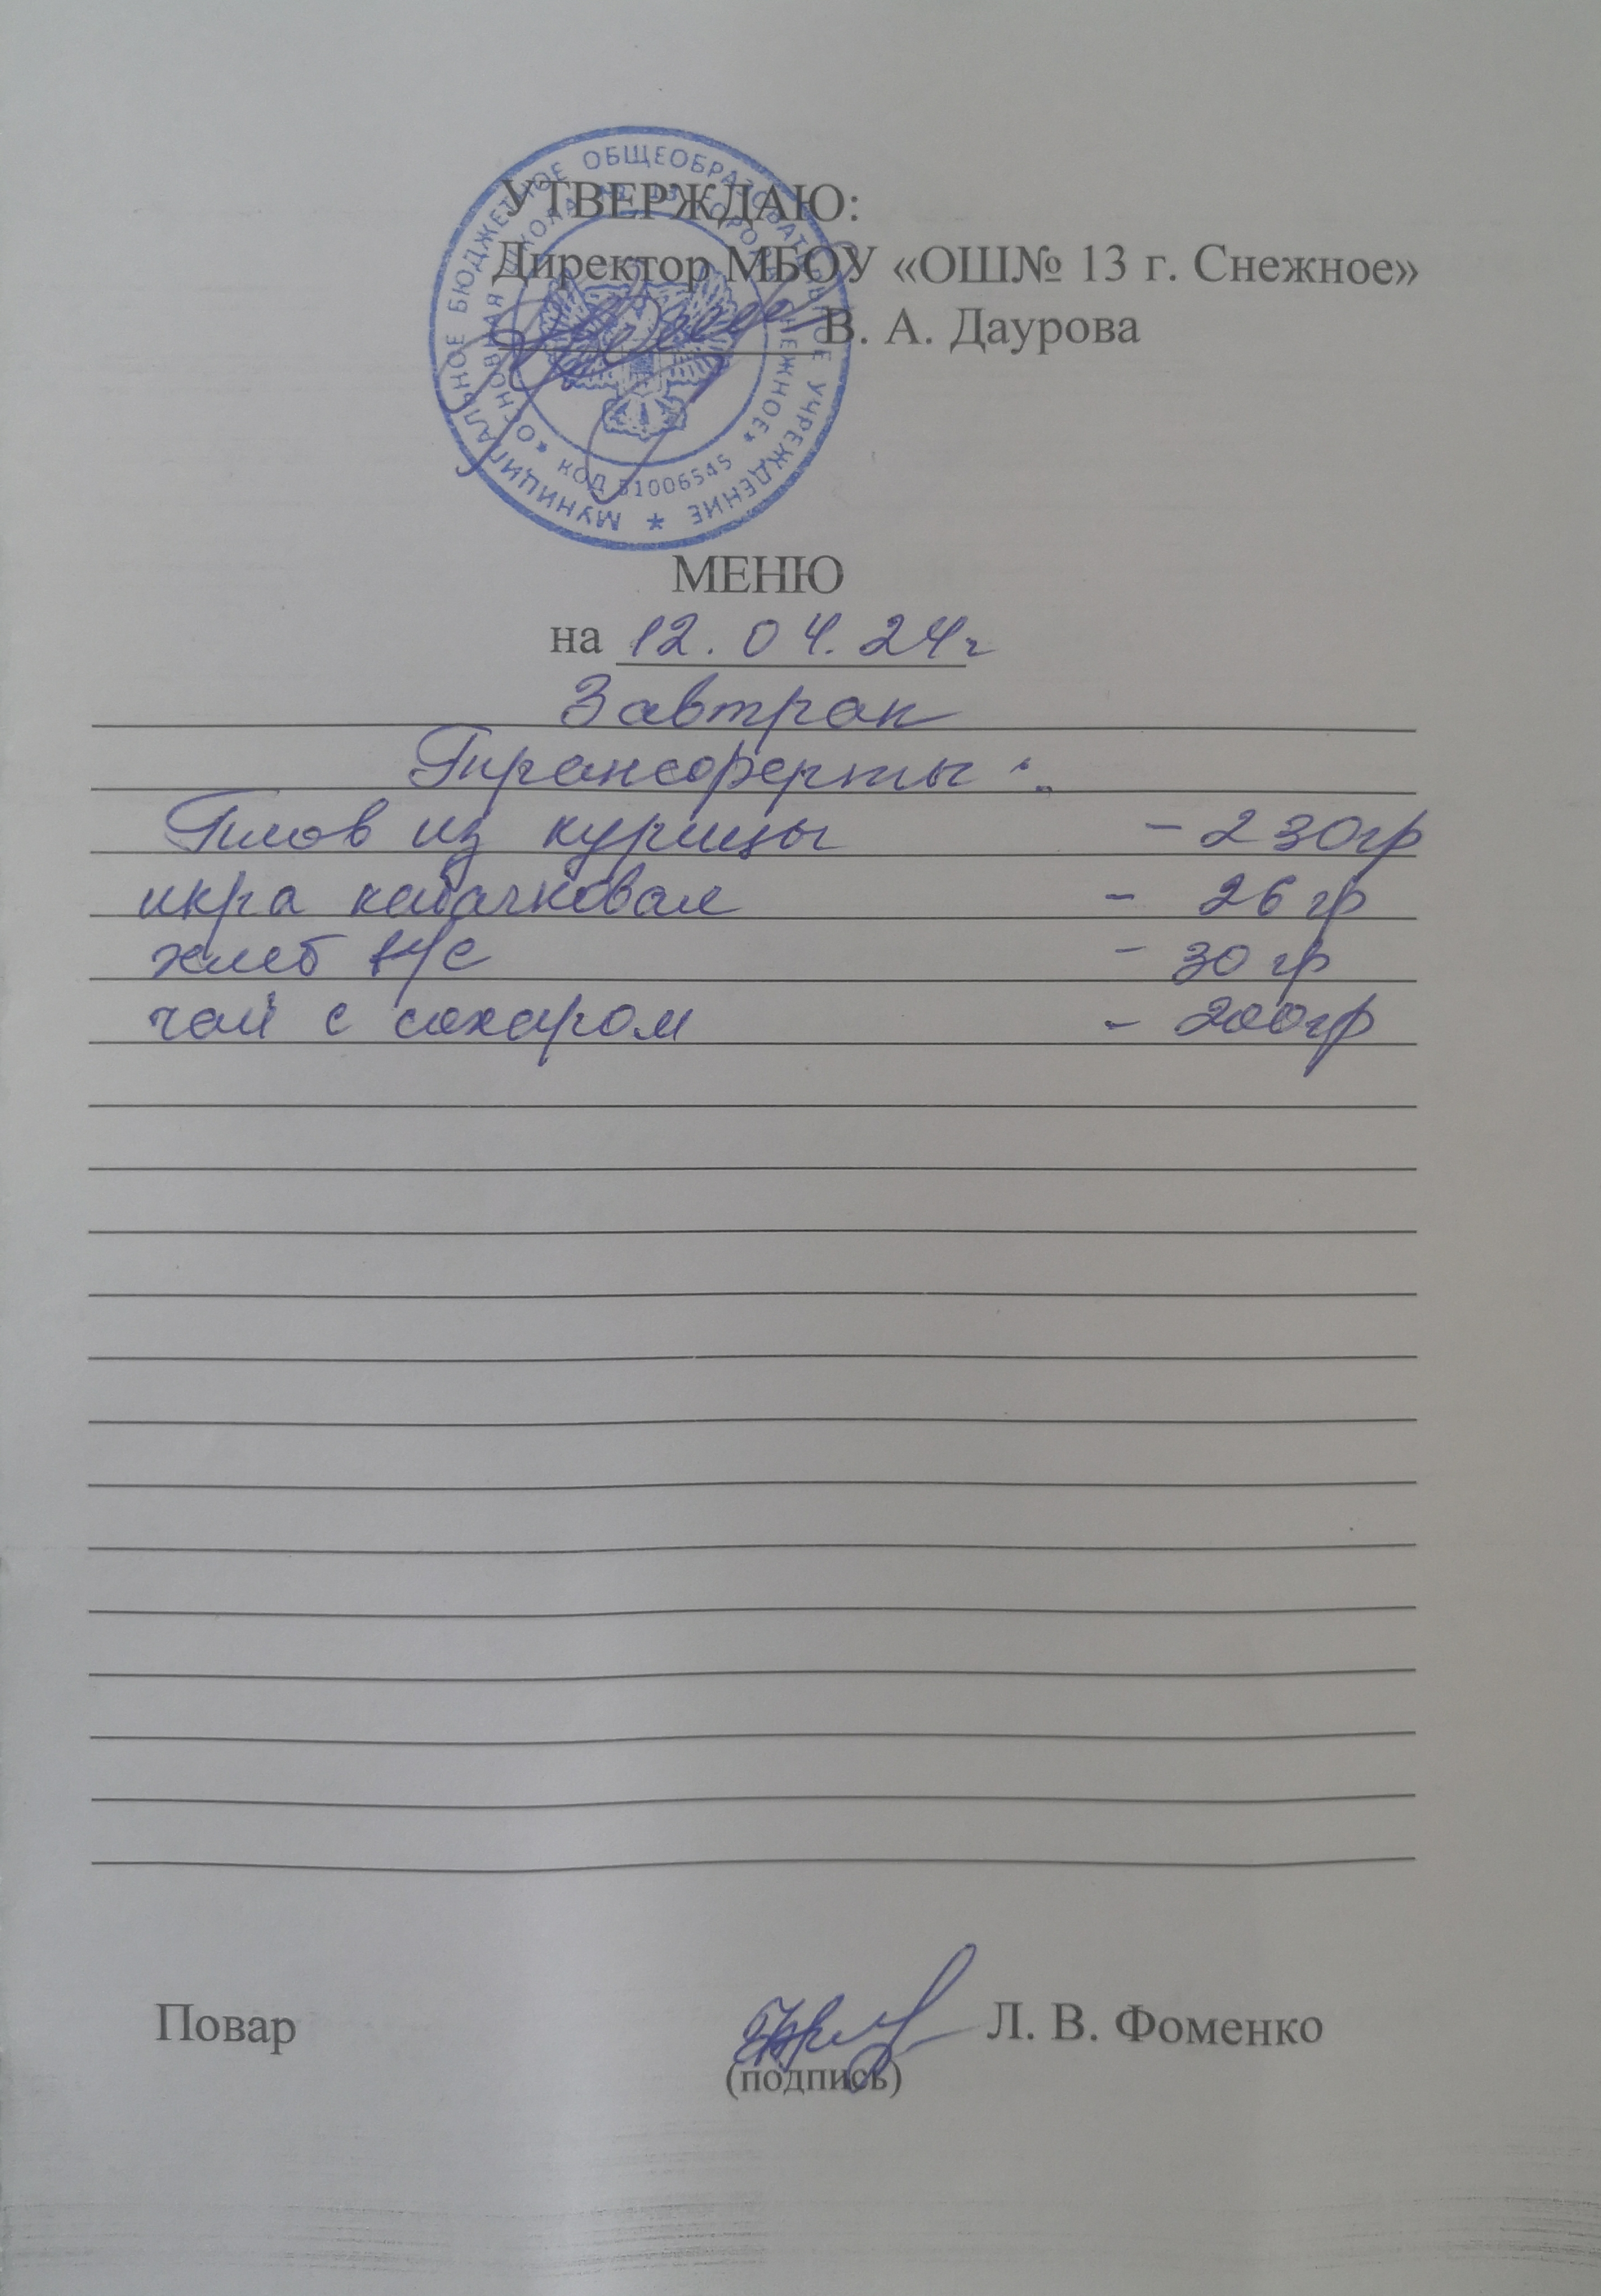 УТВЕРЖДАЮ:
Директор МБОУ «ОШ№ 13 г. Снежное»
В. А. Даурова
МУНИЦИПАЛЬНОЕ БЮДЖЕТНОЕ ОБЩЕОБРАЗОВАТЕЛЬНОЕ УЧРЕЖДЕНИЕ
«ОСНОВНАЯ ШКОЛА № 13 ГОРОДА СНЕЖНОЕ»
КОД 51006545
МЕНЮ
на 12.04.24г
Завтрак
Трансферты:
Плов из курицы - 230гр
икра кабачковая - 26 гр
хлеб - 30 гр
чай с сахаром - 200гр
Повар Л. В. Фоменко
(подпись)